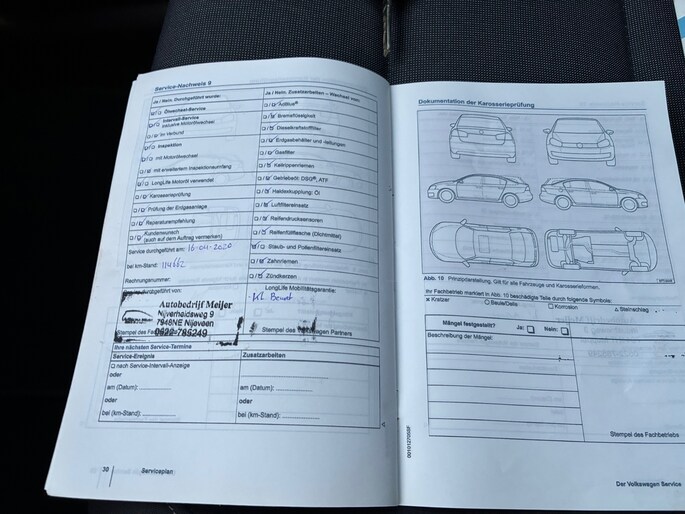 Service-Nachweis 9
Ja / Nein. Durchgeführt wurde:
Ölwechsel-Service
Intervall-Service
inklusive Motorölwechsel
im Verbund
Inspektion
mit Motorölwechsel
mit erweitertem Inspektionsumfang
LongLife Motoröl verwendet
Karosserieprüfung
Prüfung der Erdgasanlage
Reparaturempfehlung
Kundenwunsch
(auch auf dem Auftrag vermerken)
Service durchgeführt am: 16-04-2020
bei km-Stand:
Rechnungsnummer:
durchgeführt von:
Autobedrijf Meijer
Nijverheidsweg 9
7948NE Nijeveen
0522-785249
Stempel des
Ja / Nein. Zusatzarbeiten – Wechsel von:
AdBlue®
Bremsflüssigkeit
Dieselkraftstofffilter
Erdgasbehälter und -leitungen
Gasfilter
Keilrippenriemen
Getriebeöl: DSG®, ATF
Haldexkupplung: Öl
Luftfiltereinsatz
Reifendrucksensoren
Reifenfüllflasche (Dichtmittel)
Staub- und Pollenfiltereinsatz
Zahnriemen
Zündkerzen
LongLife Mobilitätsgarantie:
Stempel des Volkswagen Partners
Ihre nächsten Service-Termine
Service-Ereignis
nach Service-Intervall-Anzeige
oder
am (Datum):
oder
bei (km-Stand):
Zusatzarbeiten
am (Datum):
oder
bei (km-Stand):
30 Serviceplan
Dokumentation der Karosserieprüfung
Abb. 10 Prinzipdarstellung. Gilt für alle Fahrzeuge und Karosserieformen.
Ihr Fachbetrieb markiert in Abb. 10 beschädigte Teile durch folgende Symbole:
x Kratzer ○ Beule/Delle □ Korrosion △ Steinschlag
Mängel festgestellt? Ja: Nein:
Beschreibung der Mängel:
Stempel des Fachbetriebs
Der Volkswagen Service